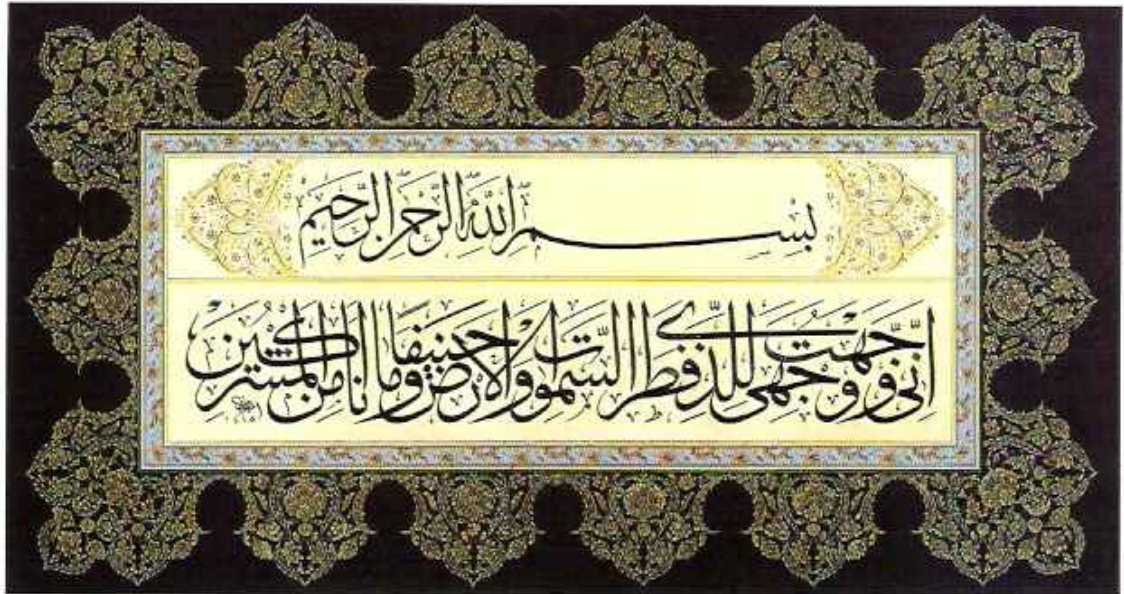 بِسْمِ اللَّهِ الرَّحْمٰنِ الرَّحِيمِ
اني وجهت وجهي للذي فطر السموات والارض حنيفا وما انا من المشركين